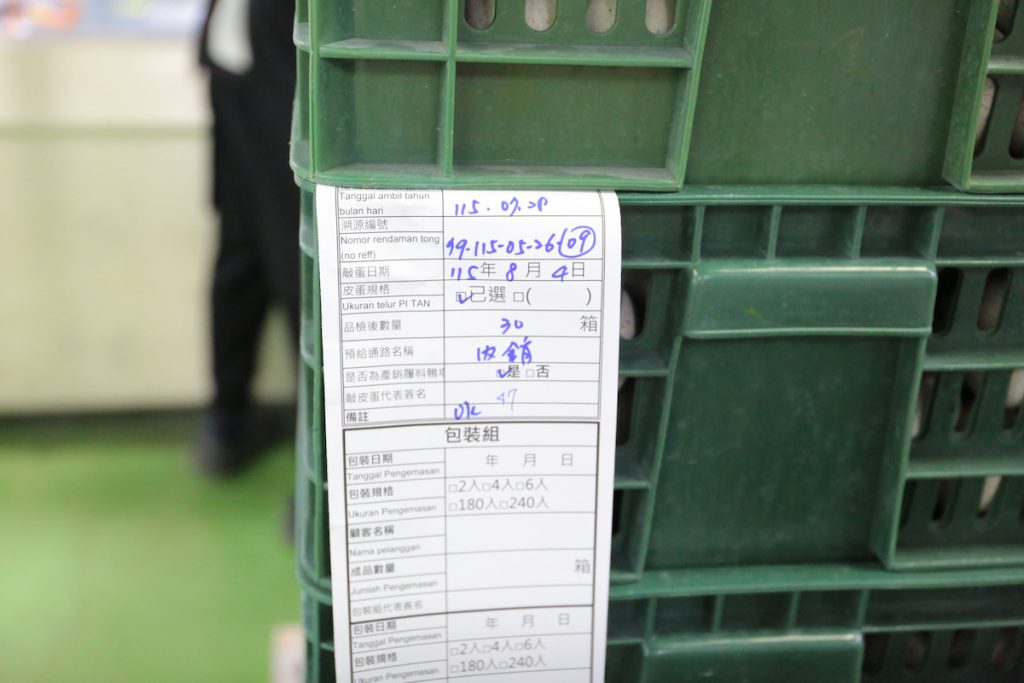 Tanggal ambil tahun
bulan hari 115.07.28
溯源編號
Nomor rendaman tong
(no reff) 49-115-05-26-09
敲蛋日期 115年8月4日
皮蛋規格
Ukuran telur PI TAN
☑已選 □( )
品檢後數量 30 箱
預給通路名稱 內銷
是否為產銷履料鴨 ☑是 □否
敲皮蛋代表簽名 47
備註 OK
包裝組
包裝日期 年 月 日
Tanggal Pengemasan
包裝規格 □2入□4入□6入
Ukuran Pengemasan □180入□240入
顧客名稱
Nama pelanggan
成品數量 箱
Jumlah Pengemasan
包裝組代表簽名
包裝日期 年 月 日
Tanggal Pengemasan
包裝規格 □2入□4入□6入
Ukuran Pengemasan □180入□240入